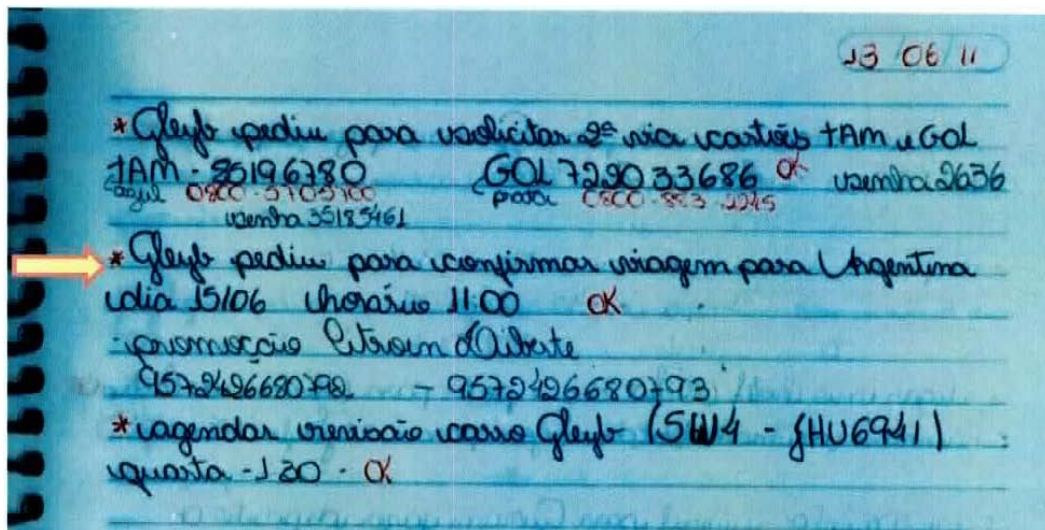 13 06 11
* Gleyb pediu para solicitar 2ª via cartões TAM e GOL
TAM - 85196780 GOL 722033686 OK senha 2636
azul 0800-5705700 para 0800-883-2245
senha 35185461
* Gleyb pediu para confirmar viagem para Argentina
dia 15/06 horário 11:00 OK
promoção Citroen
9572426680792 - 9572426680793
* agendar revisão carro Gleyb (SW4 - JHU6941)
quarta - OK